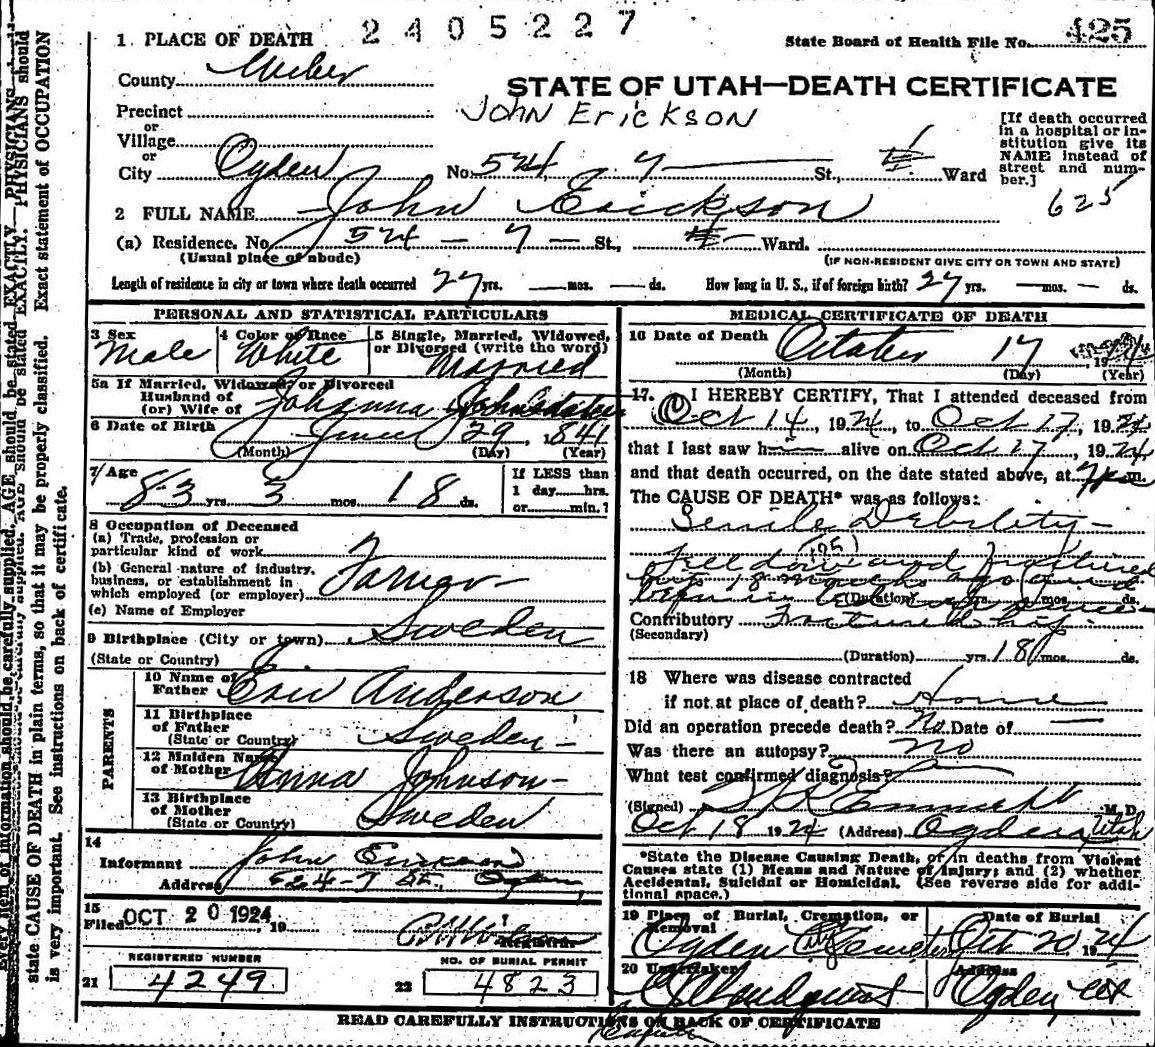 2405227
1 PLACE OF DEATH
State Board of Health File No. 425
County Weber
STATE OF UTAH—DEATH CERTIFICATE
Precinct
John Erickson
or
Village
or
City Ogden No. 524 7 St., Ward
[If death occurred
in a hospital or in-
stitution give its
NAME instead of
street and num-
ber.]
625
2 FULL NAME John Erickson
(a) Residence. No. 524 - 7 - St., Ward.
(Usual place of abode)
(IF NON-RESIDENT GIVE CITY OR TOWN AND STATE)
Length of residence in city or town where death occurred 27 yrs. — mos. — ds. How long in U. S., if of foreign birth? 27 yrs. — mos. — ds.
PERSONAL AND STATISTICAL PARTICULARS
3 Sex
Male
4 Color or Race
White
5 Single, Married, Widowed,
or Divorced (write the word)
Married
5a If Married, Widowed, or Divorced
Husband of
(or) Wife of Johanna
6 Date of Birth June 29, 1841
(Month) (Day) (Year)
7 Age
83 yrs. 3 mos. 18 ds.
If LESS than
1 day......hrs.
or......min.?
8 Occupation of Deceased
(a) Trade, profession or
particular kind of work
(b) General nature of industry,
business, or establishment in
which employed (or employer)
Farmer
(c) Name of Employer
9 Birthplace (City or town) Sweden
(State or Country)
PARENTS
10 Name of
Father Eric Anderson
11 Birthplace
of Father
(State or Country) Sweden
12 Maiden Name
of Mother Anna Johnson
13 Birthplace
of Mother
(State or Country) Sweden
14
Informant John Erickson
Address 524-7 St., Ogden
15
Filed OCT 20 1924, 19
Registrar
REGISTERED NUMBER
21 4249
NO. OF BURIAL PERMIT
22 4823
MEDICAL CERTIFICATE OF DEATH
16 Date of Death October 17 1924
(Month) (Day) (Year)
17. I HEREBY CERTIFY, That I attended deceased from
Oct 14, 1924, to Oct 17, 1924
that I last saw him alive on Oct 17, 1924
and that death occurred, on the date stated above, at 7 pm.
The CAUSE OF DEATH* was as follows:
Senile Debility -
Fell down and fractured
hip 18 months ago and
(Duration) yrs. mos. ds.
Contributory Fractured hip
(Secondary)
(Duration) yrs. 18 mos. ds.
18 Where was disease contracted
if not at place of death? Home
Did an operation precede death? No Date of —
Was there an autopsy? No
What test confirmed diagnosis?
(Signed) Emmett M. D.
Oct 18 1924 (Address) Ogden Utah
*State the Disease Causing Death, or in deaths from Violent
Causes state (1) Means and Nature of Injury; and (2) whether
Accidental, Suicidal or Homicidal. (See reverse side for addi-
tional space.)
19 Place of Burial, Cremation, or
Removal
Ogden City Cemetery
Date of Burial
Oct 20, 1924
20 Undertaker
Lindquist
Address
Ogden
READ CAREFULLY INSTRUCTIONS ON BACK OF CERTIFICATE
Every item of information should be carefully supplied. AGE should be stated EXACTLY. PHYSICIANS should
state CAUSE OF DEATH in plain terms, so that it may be properly classified. Exact statement of OCCUPATION
is very important. See instructions on back of certificate.